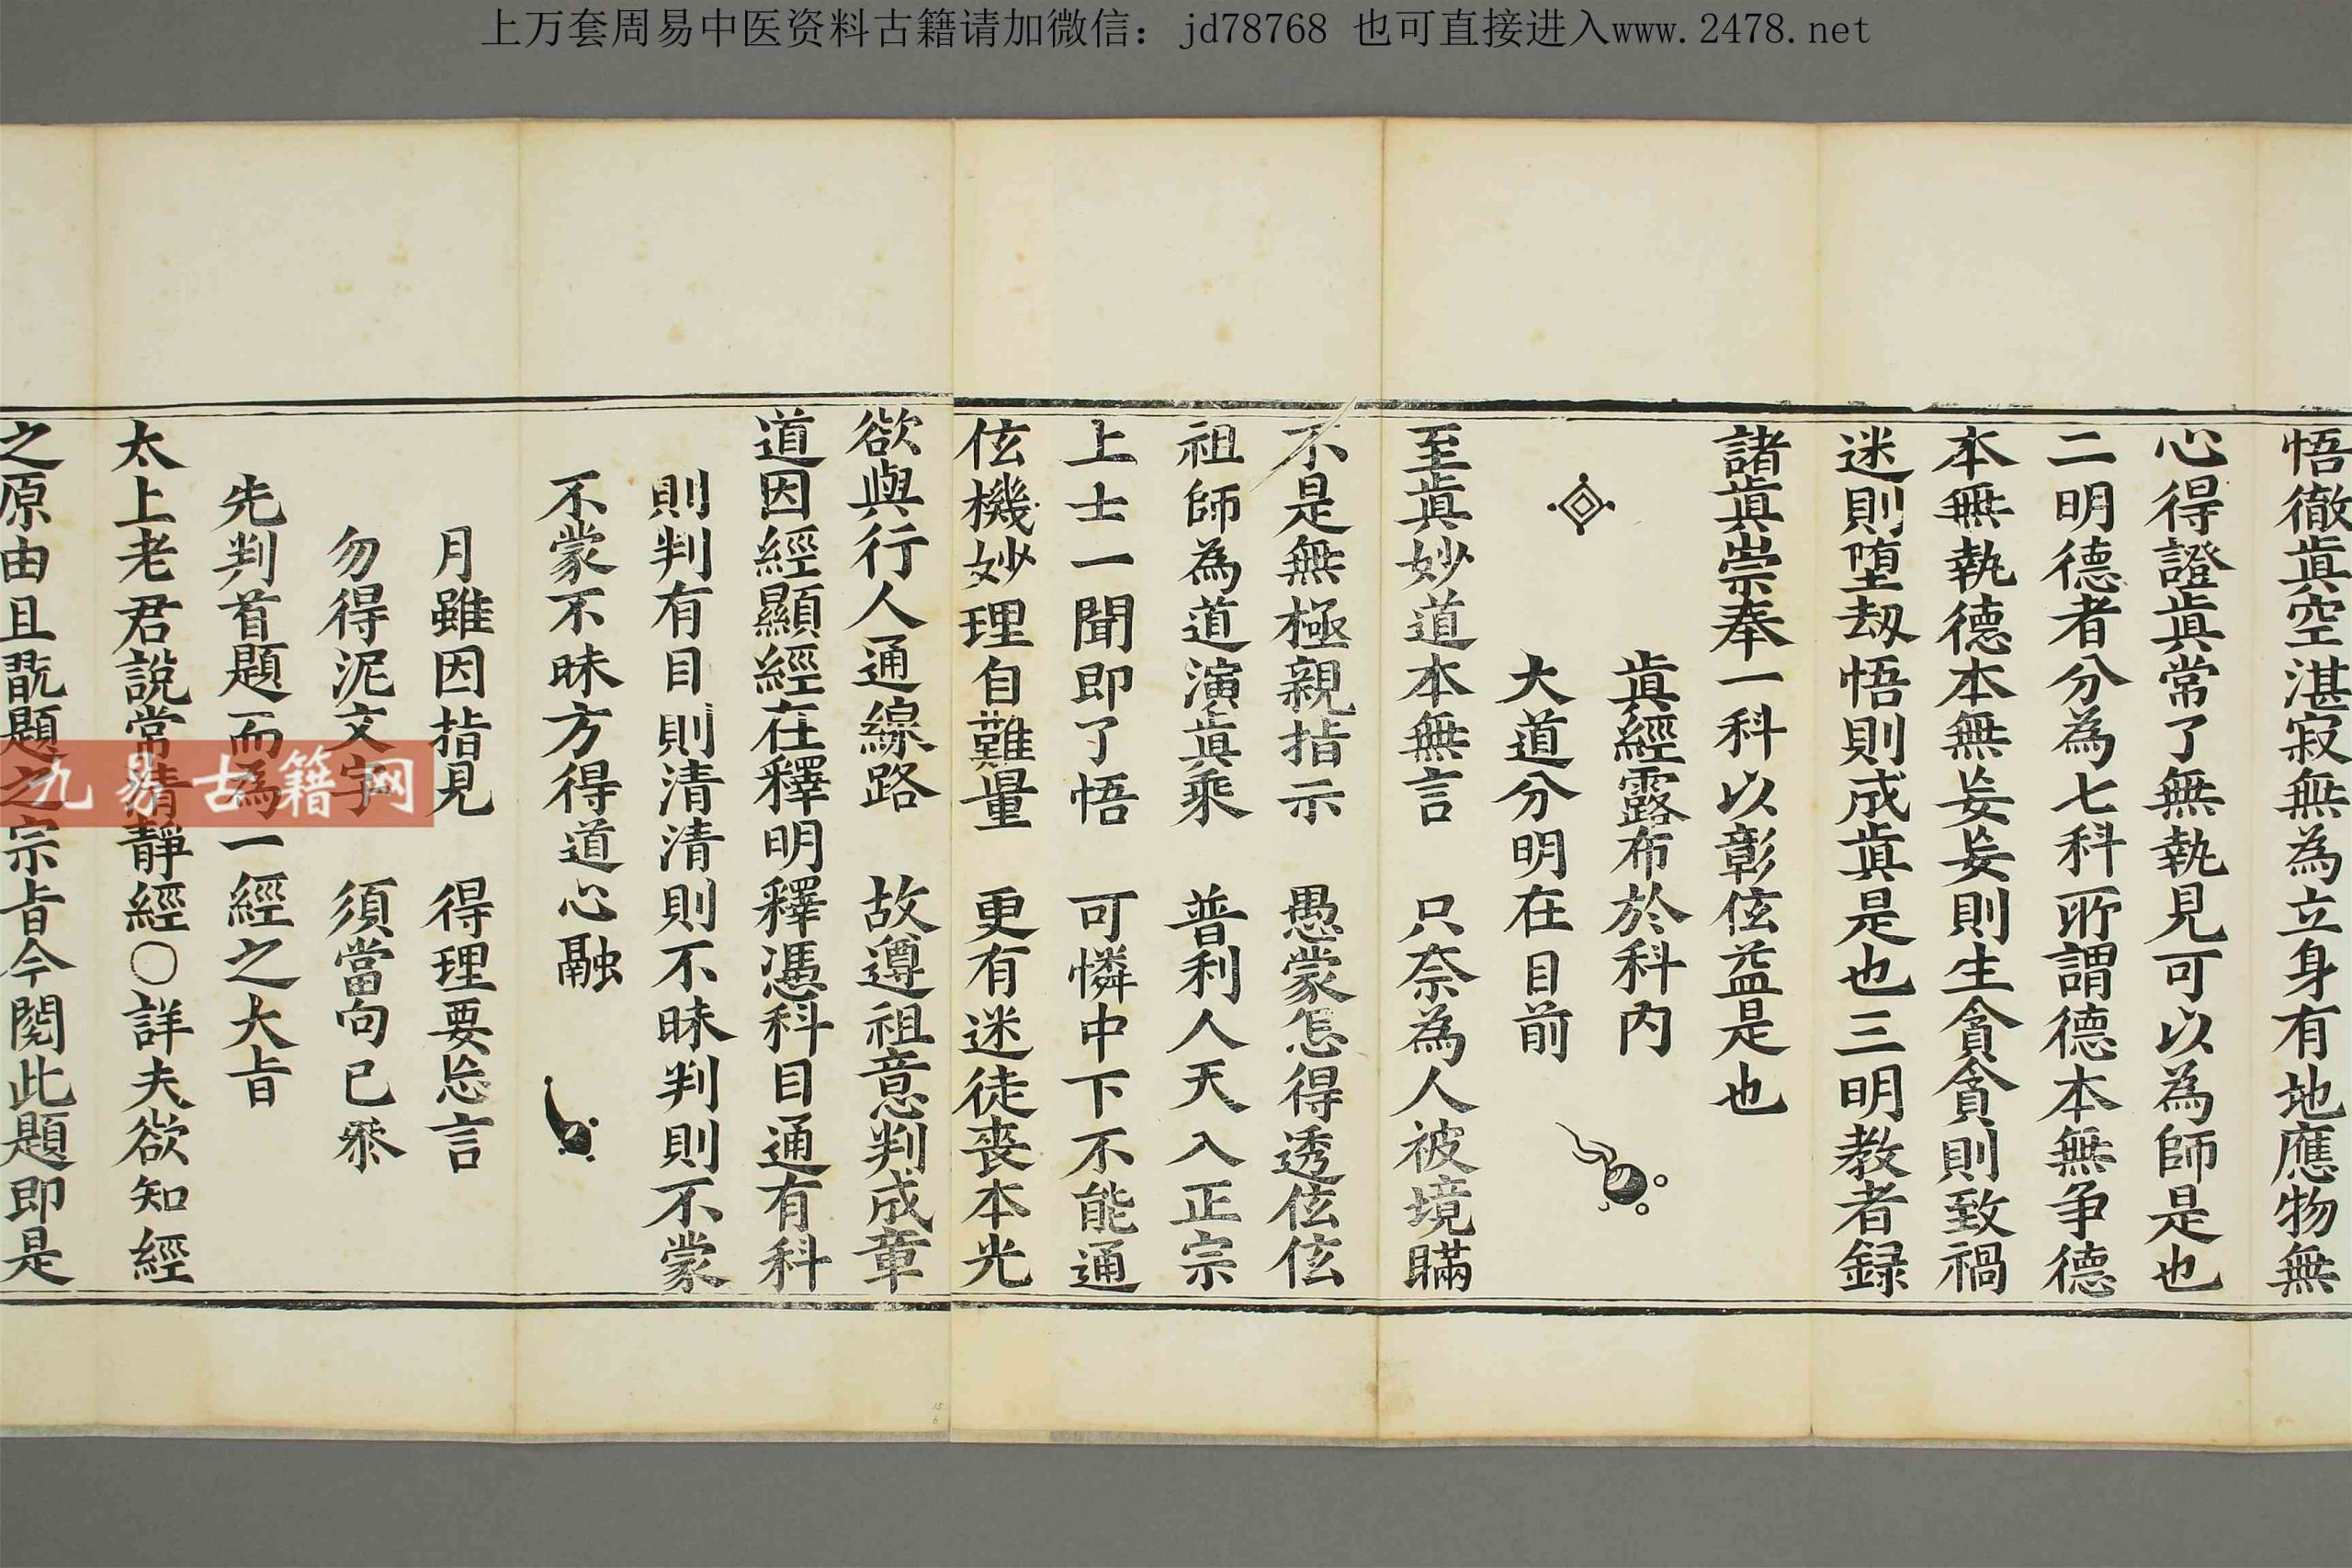 上万套周易中医资料古籍请加微信：jd78768 也可直接进入www.2478.net
悟徹眞空湛寂無為立身有地應物無
心得證眞常了無執見可以為師是也
二明德者分為七科所謂德本無争德
本無執德本無妄妄則生貪貪則致禍
迷則堕劫悟則成眞是也三明教者録
諸眞崇奉一科以彰伭益是也
眞經露布於科内
大道分明在目前
至眞妙道本無言　只奈為人被境瞞
不是無極親指示　愚蒙怎得透伭伭
祖師為道演眞乘　普利人天入正宗
上士一聞即了悟　可憐中下不能通
伭機妙理自難量　更有迷徒丧本光
欲與行人通線路　故遵祖意判成章
道因經顯經在釋明釋憑科目通有科
則判有目則清清則不昧判則不蒙
不蒙不昧方得道心融
月雖因指見　得理要忘言
勿得泥文字　須當向已叅
先判首題而為一經之大㫖
太上老君說常清靜經〇詳夫欲知經
之原由且翫題之宗㫖今閲此題即是
九易古籍网